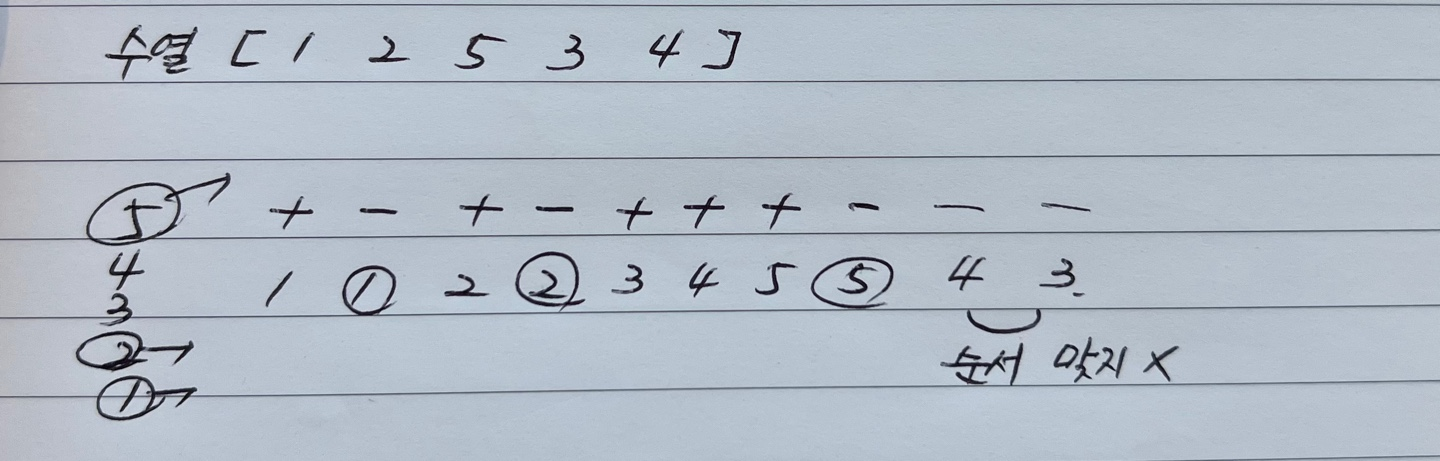 수열 [ 1 2 5 3 4 ]
5 → + - + - + + + - - -
4 1 1 2 2 3 4 5 5 4 3.
3
2 → 순서 맞지 X
1 →